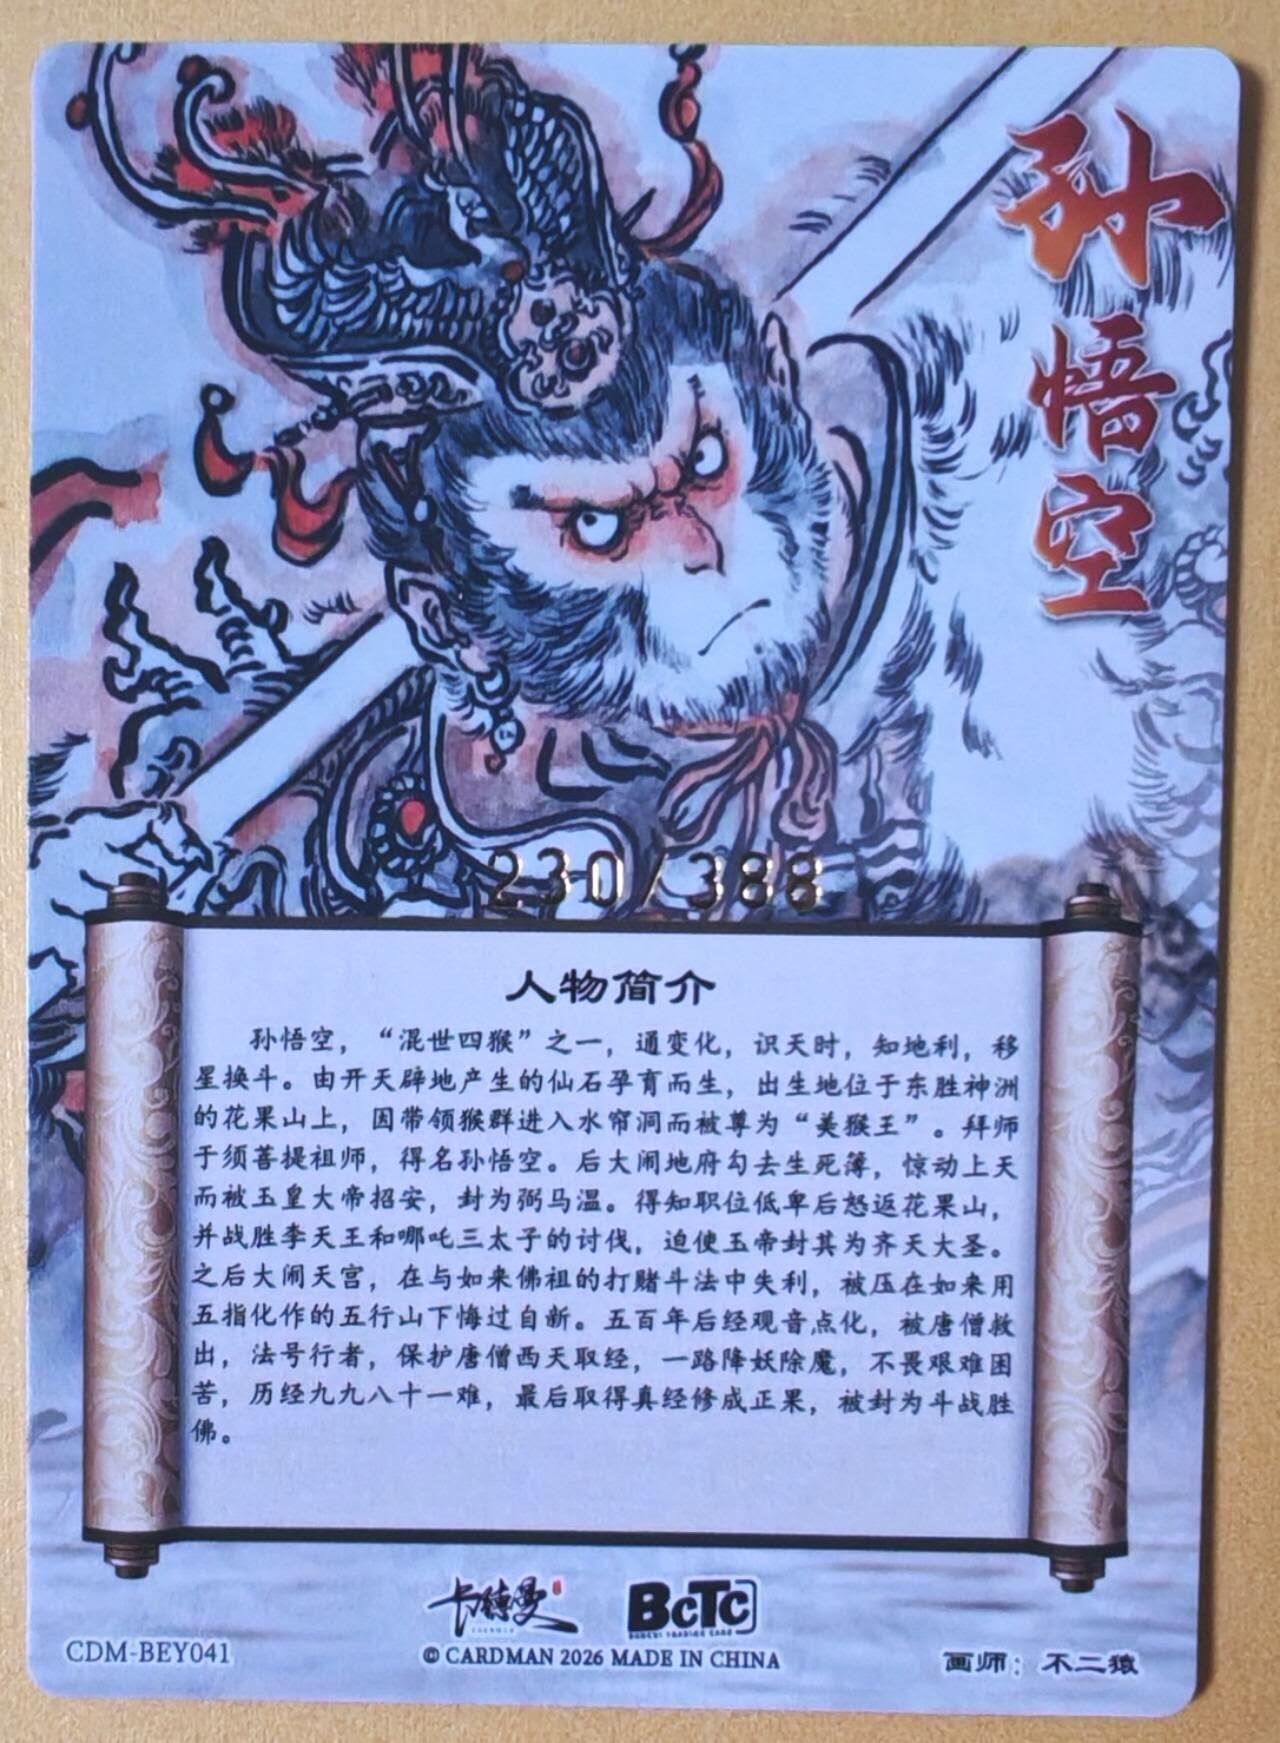 孙悟空
230/388
人物简介
孙悟空，“混世四猴”之一，通变化，识天时，知地利，移
星换斗。由开天辟地产生的仙石孕育而生，出生地位于东胜神洲
的花果山上，因带领猴群进入水帘洞而被尊为“美猴王”。拜师
于须菩提祖师，得名孙悟空。后大闹地府勾去生死簿，惊动上天
而被玉皇大帝招安，封为弼马温。得知职位低卑后怒返花果山，
并战胜李天王和哪吒三太子的讨伐，迫使玉帝封其为齐天大圣。
之后大闹天宫，在与如来佛祖的打赌斗法中失利，被压在如来用
五指化作的五行山下悔过自新。五百年后经观音点化，被唐僧救
出，法号行者，保护唐僧西天取经，一路降妖除魔，不畏艰难困
苦，历经九九八十一难，最后取得真经修成正果，被封为斗战胜
佛。
卡德曼
BCTC
CDM-BEY041
© CARDMAN 2026 MADE IN CHINA
画师：不二猿